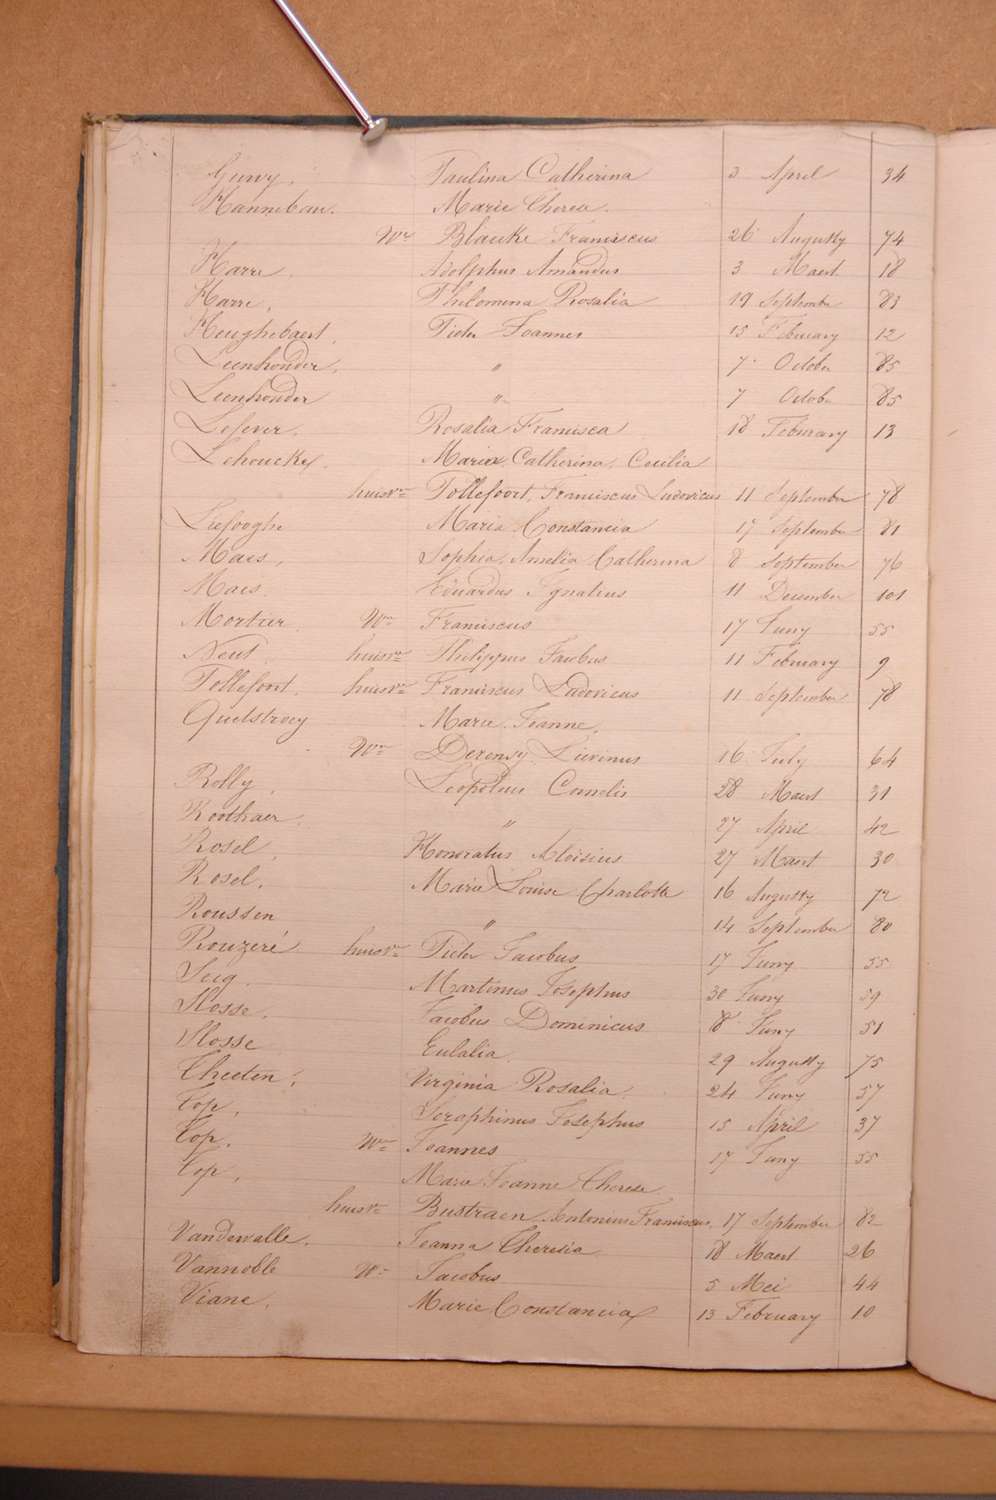 Gurvy, Paulina Catherina 3 April 34
Hannebau. Marie Theresa.
Wᵉ Blauke Franciscus 26 Augusty 74
Harre, Adolphus Amandus 3 Maert 18
Harre, Philomena Rosalia 19 September 83
Heughebaert, Pieter Joannes 15 February 12
Leenhonder, " 7 October 85
Leenhonder " 7 October 85
Lefever. Rosalia Francisca 18 February 13
Lehoucke. Maria Catherina Cecilia
huisvʳᵉ Tollefoort, Franciscus Ludovicus 11 September 78
Liefooghe Maria Constancia 17 September 81
Maes, Sophia Amelia Catherina 8 September 76
Maes. Eduardus Ignatius 11 December 101
Mortier Wᵉ Franciscus 17 Juny 55
Neut huisvʳᵉ Philippus Jacobus 11 February 9
Tollefoort. huisvʳᵉ Franciscus Ludovicus 11 September 78
Quelstroey Marie Jeanne,
Wᵉ Derensy Lievinus 16 July 64
Rolly, Leopoldus Cornelis 28 Maert 31
Roothaer " 27 April 42
Rosel, Honoratus Aloisius 27 Maert 30
Rosel, Marie Louise Charlotte 16 Augusty 72
Roussen " 14 September 80
Rouzeré huisvʳᵉ Pieter Jacobus 17 Juny 55
Seig. Martinus Josephus 30 Juny 59
Slosse. Jacobus Dominicus 8 Juny 51
Slosse Eulalia 29 Augusty 75
Theeten, Virginia Rosalia. 24 Juny 57
Top, Seraphinus Josephus 15 April 37
Top. Wᵉ Joannes 17 Juny 55
Top, Marie Jeanne Therese
huisvʳᵉ Bustraen Antonius Franciscus, 17 September 82
Vandewalle. Jeanna Theresia 18 Maert 26
Vannoble Wᵉ Jacobus 5 Mei 44
Viane, Marie Constancia 13 February 10